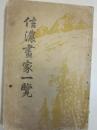 信濃畫家一覽